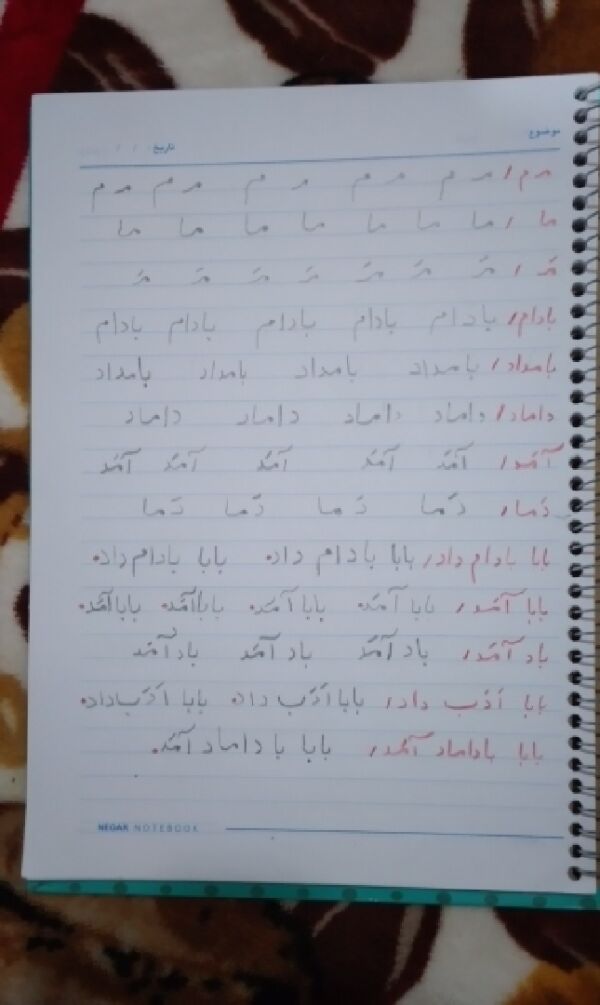 موضوع: تاریخ: / /
مـ م / مـ م مـ م مـ م مـ م مـ م
ما / ما ما ما ما ما ما ما
مَـ / مَـ مَـ مَـ مَـ مَـ مَـ مَـ
بادام / بادام بادام بادام بادام بادام
بامداد / بامداد بامداد بامداد بامداد
داماد / داماد داماد داماد داماد
آمَد / آمَد آمَد آمَد آمَد آمَد
دَما / دَما دَما دَما دَما
بابا بادام داد / بابا بادام داد. بابا بادام داد.
بابا آمَد / بابا آمَد. بابا آمَد. بابا آمَد. بابا آمَد.
باد آمَد / باد آمَد باد آمَد باد آمَد
بابا اَدَب داد / بابا اَدَب داد. بابا اَدَب داد.
بابا با داماد آمَد / بابا با داماد آمَد.
NEGAR NOTEBOOK